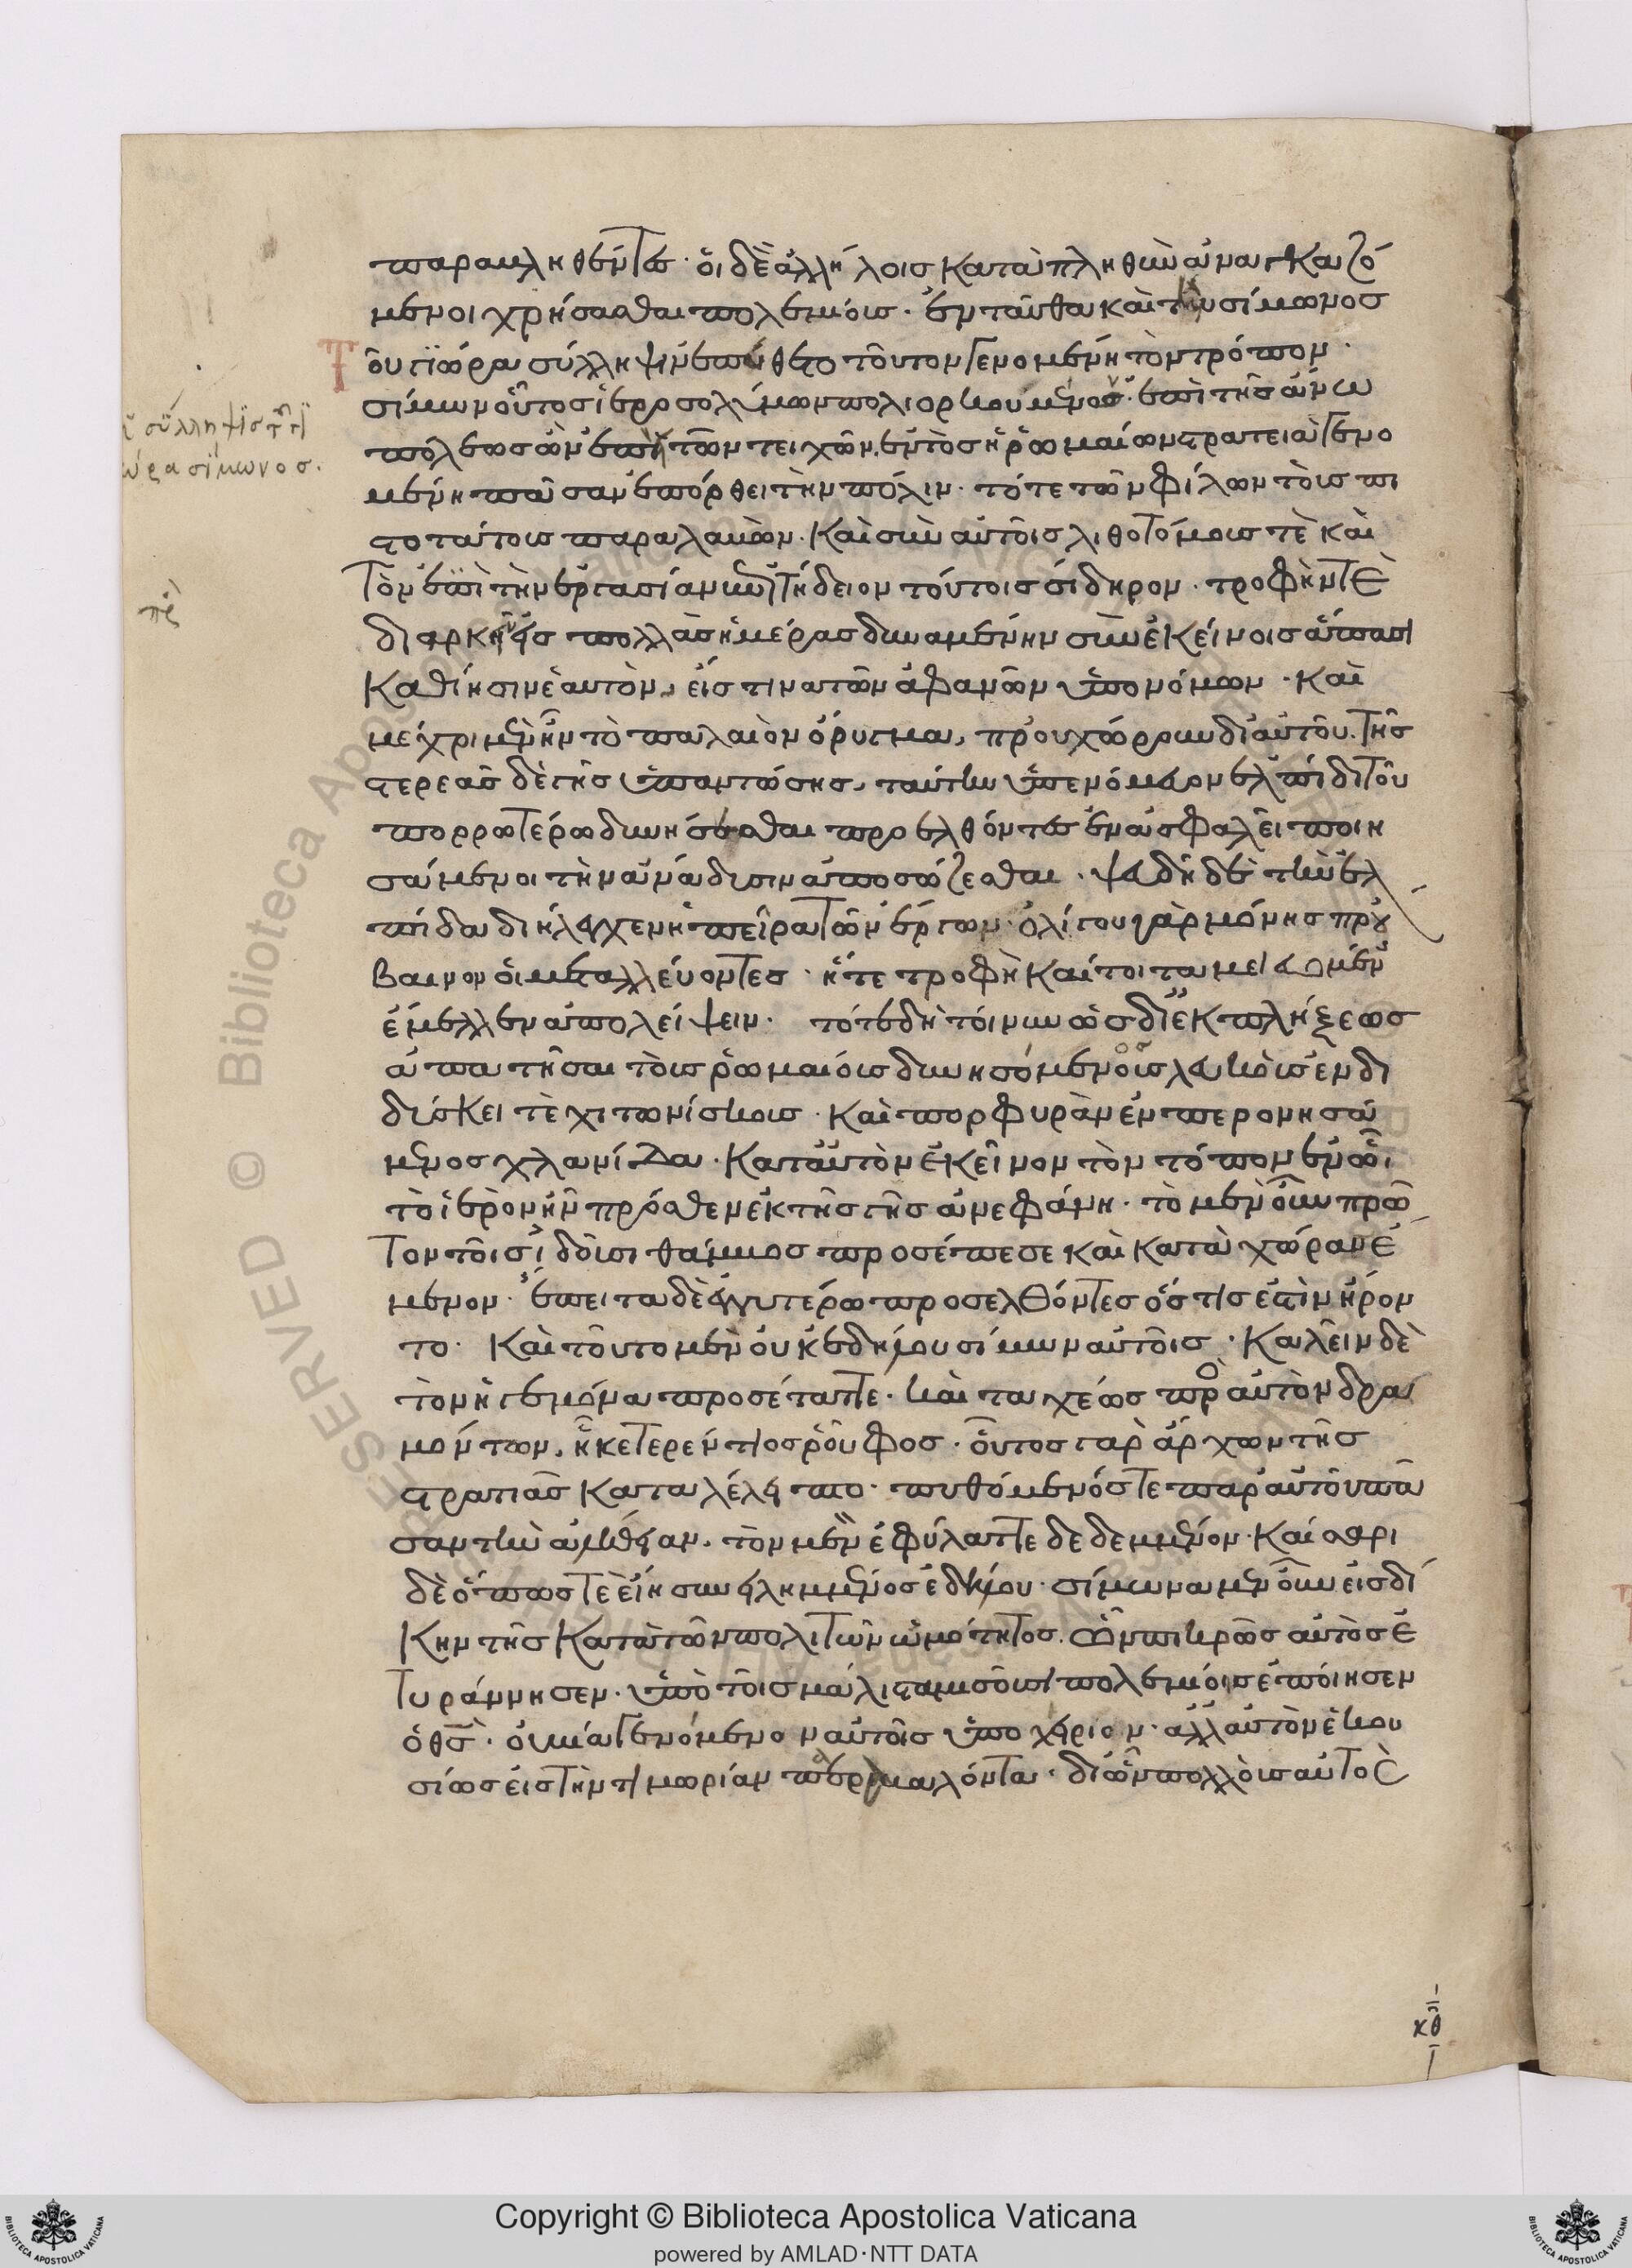 παραβληθέντες· οἱ δὲ ἀλλήλοις κατὰ πληθὺν ἀναγκαζό
μενοι χρήσασθαι πολεμίοις. ἐνταῦθα καὶ τὴν σίμωνος
Τοῦ γιώρα σύλληψιν ἐπύθετο τοῦτον γενομένη τὸν τρόπον·
σίμων οὗτος ἱεροσολύμων πολιορκουμένων· ἐπὶ τῆς ἄνω
πόλεως ὢν ἐπεὶ τῶν τειχῶν ἐντὸς ἡ ῥωμαίων στρατειὰ γενο
μένη πᾶσαν ἐπόρθει τὴν πόλιν· τότε τῶν φίλων τοὺς πι
στοτάτους παραλαβών· καὶ σὺν αὐτοῖς λιθοτόμους τὲ καὶ
τὸν ἐπὶ τὴν ἐργασίαν ἐπιτήδειον τούτοις σίδηρον· τροφήν τε
διαρκεῖν εἰς πολλὰς ἡμέρας δυναμένην σὺν ἐκείνοις ἅπασι
καθίησιν ἑαυτὸν, εἴς τινα τῶν ἀφανῶν ὑπονόμων· καὶ
μέχρι μὲν ἦν τὸ παλαιὸν ὄρυγμα, προυχώρουν δι αὐτοῦ· τῆς
στερεᾶς δὲ γῆς ὑπαντώσης, ταύτην ὑπενόμευον ἐλπίδι τοῦ
πορρωτέρω δυνήσεσθαι προελθόντας ἐν ἀσφαλεῖ ποιη
σάμενοι τὴν ἀνάδυσιν ἀποσώζεσθαι· ψευδῆ δὲ τὴν ἐλ
πίδα διήλεγχεν ἡ πεῖρα τῶν ἔργων· ὀλίγου γὰρ μόλης πρού
βαινον οἱ μεταλλεύοντες· ἥτε τροφὴ καίτοι ταμιευομέν
ἔμελλεν ἀπολείψειν· τότε δὴ τοίνυν ὡς δι ἐκπλήξεως
ἀπατῆσαι τοὺς ῥωμαίους δυνησόμενος λευκοὺς ἐνδι
δύσκει τὲ χιτωνίσκους· καὶ πορφυρὰν ἐνπερονησά
μενος χλανίδα· κατ αὐτὸν ἐκεῖνον τὸν τόπον ἐν ὧι
τὸ ἱερὸν ἦν πρόσθεν ἐκ τῆς γῆς ἀνεφάνη· τὸ μὲν οὖν πρῶ
τον τοῖς ἰδοῦσι θάμβος προσέπεσε καὶ κατὰ χώραν ἔ
μενον· ἔπειτα δὲ ἐγγυτέρω προσελθόντες ὅστις ἐστὶν ἤρον
το· καὶ τοῦτο μὲν οὐκ ἐδήλου σίμων αὐτοῖς· καλεῖν δὲ
τὸν ἡγεμόνα προσέταττε· καὶ ταχέως πρὸς αὐτὸν δρα
μόντων, ἧκε τερέντιος ῥοῦφος· οὗτος γὰρ ἄρχων τῆς
στρατιᾶς καταλέλειπτο· πυθόμενός τε παρ αὐτοῦ πᾶ
σαν τὴν ἀλήθειαν, τὸν μὲν ἐφύλαττε δεδεμμένον· καίσαρι
δὲ ὅπως τε εἴη συνειλημμένος ἐδήλου· σίμωνα μὲν οὖν εἰς δί
κην τῆς κατὰ τῶν πολιτῶν ὠμότητος· ὧν πικρῶς αὐτὸς ἐ
τυράννησεν· ὑπὸ τοῖς μάλιστα μισοῦσι πολεμίοις ἐποίησεν
ὁ θς̄· οὐ κατὰ γενόμενον αὐτοῖς ὑποχείριον· ἀλλ αὐτὸν ἑκου
σίως εἰς τὴν τιμωρίαν παραβαλόντα· δι ὧν πολλοὺς αὐτὸς
ἡ σύλληψις τοῦ γι
ώρα σίμωνος.
κθ